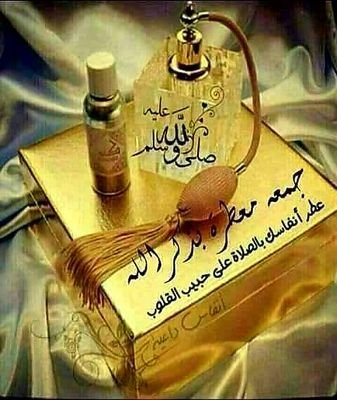 صلى الله عليه وسلم
جمعه معطرة بذكر الله
عطر أنفاسك بالصلاة على حبيب القلوب
أنفاس داعية